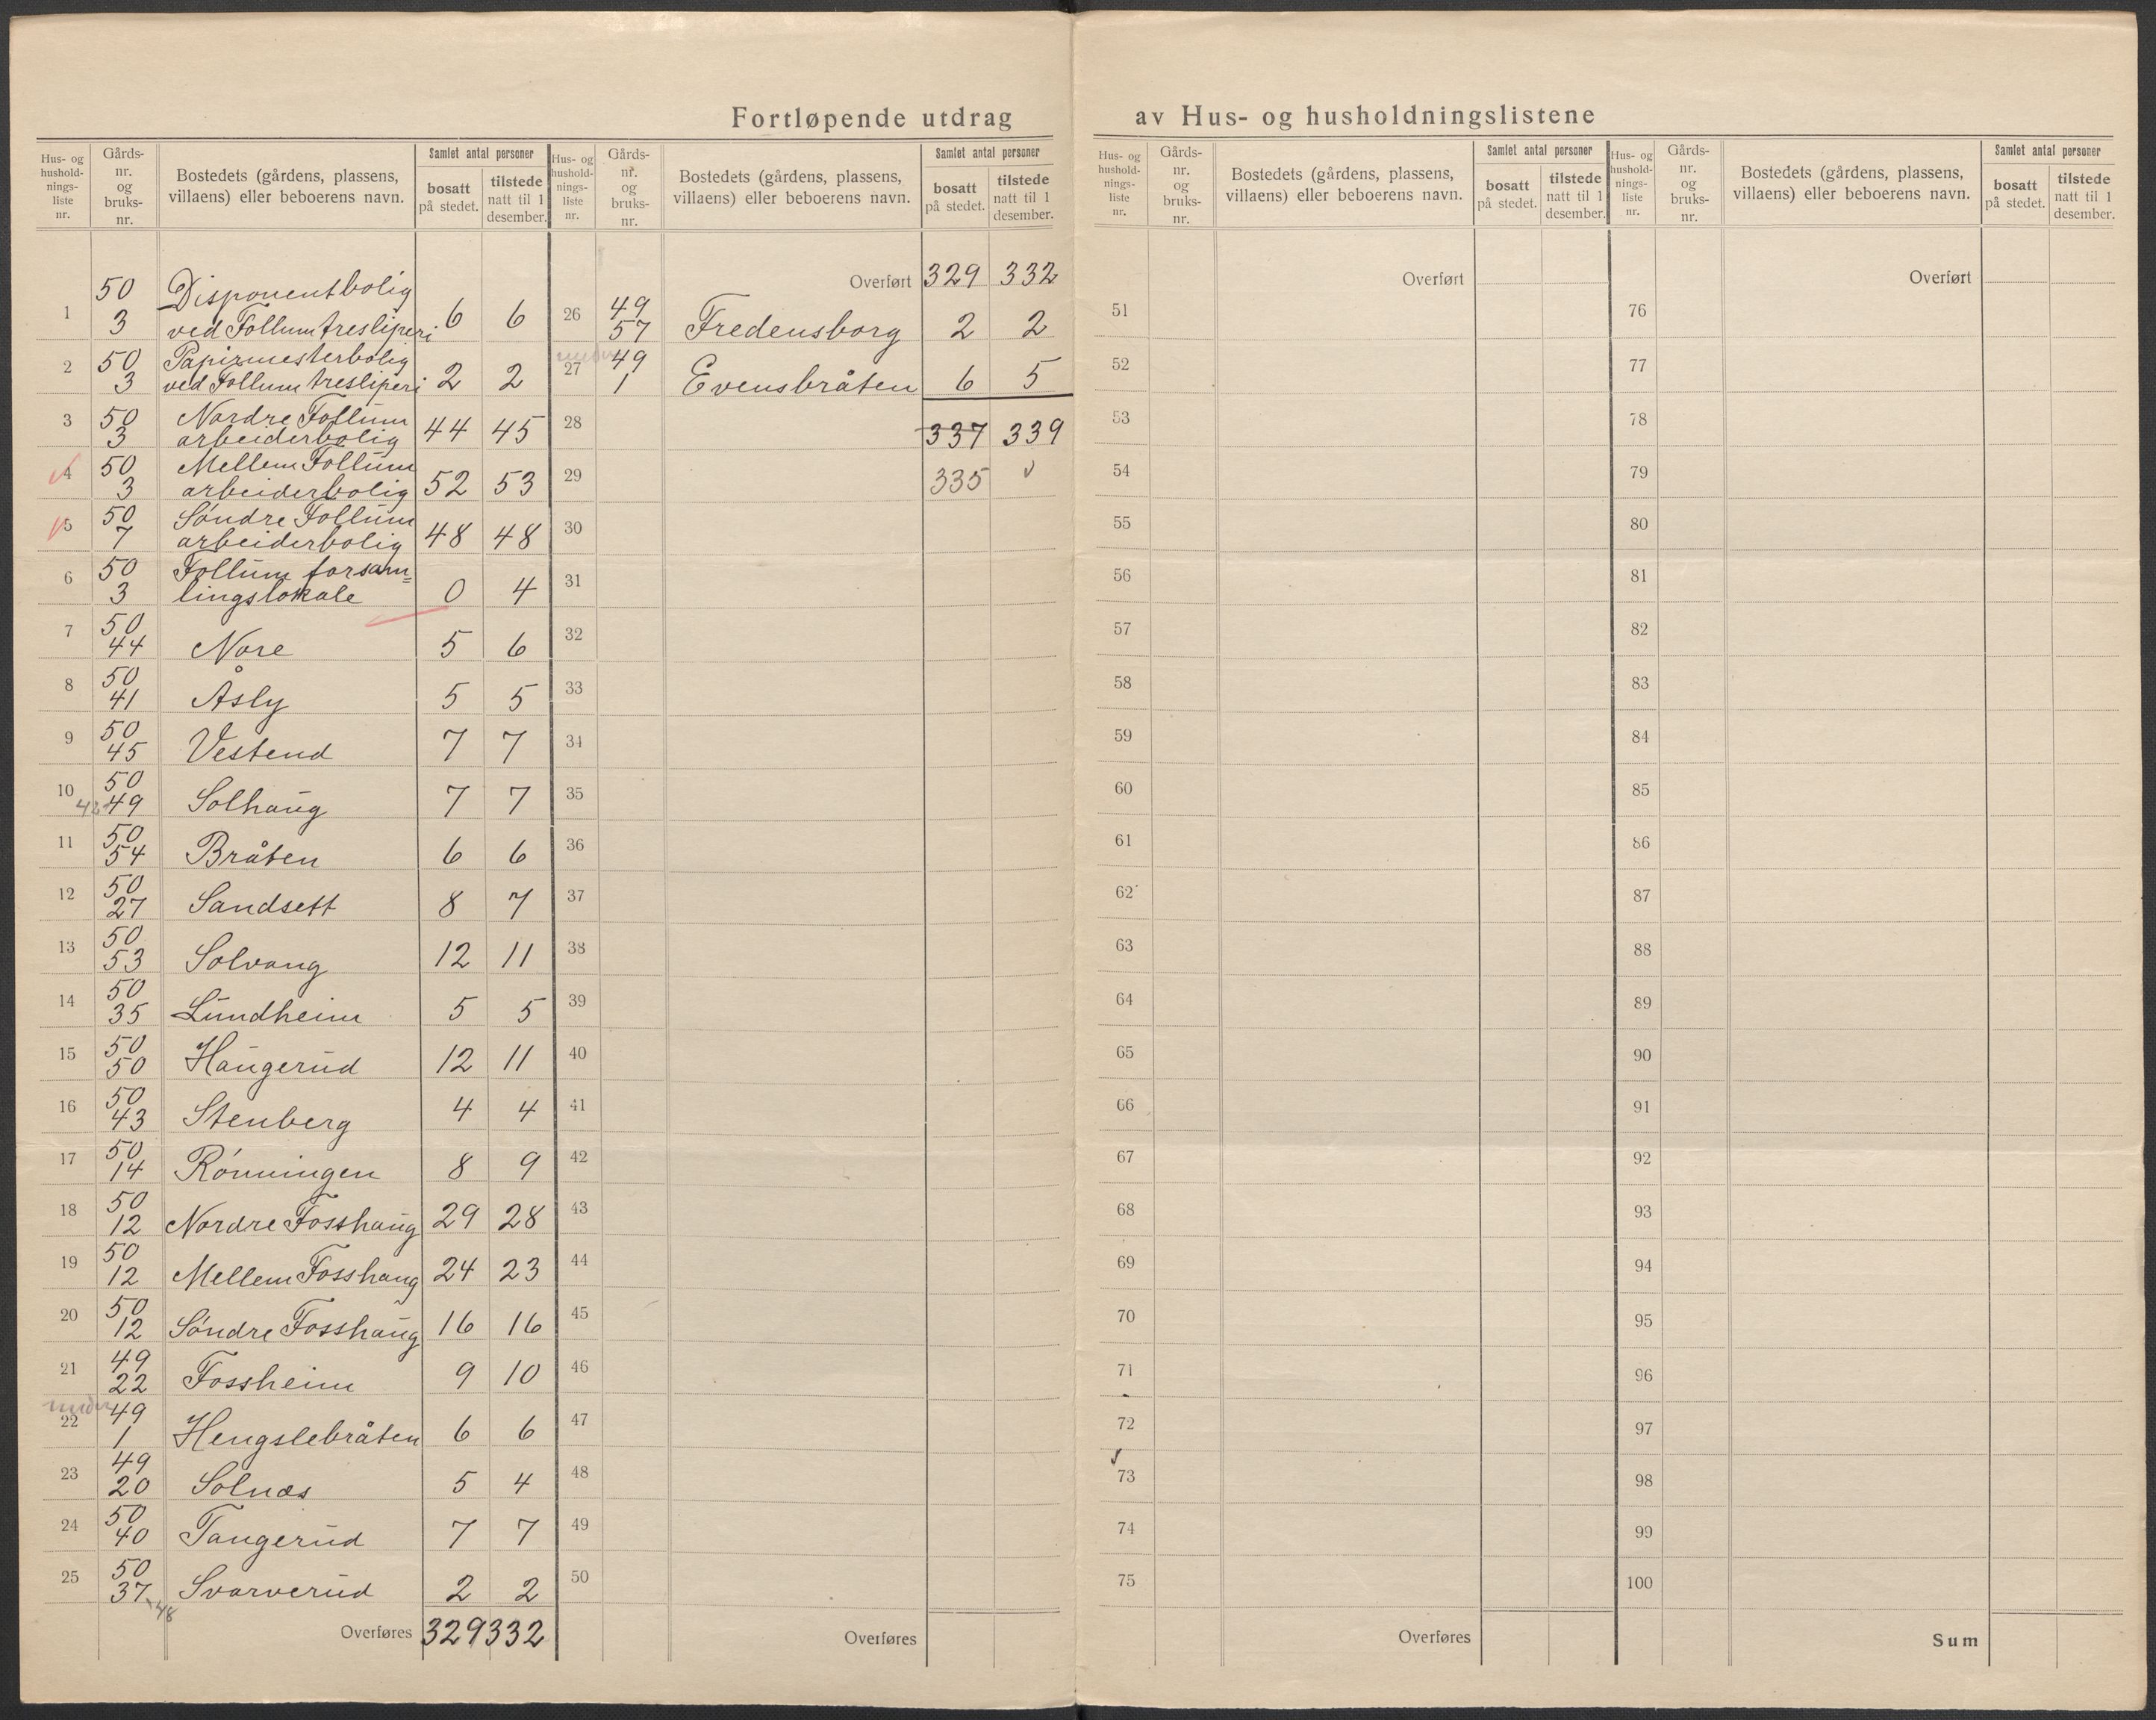 Fortløpende utdrag av Hus- og husholdningslistene
Hus- og hushold- nings- liste nr. Gårds- nr. og bruks- nr. Bostedets (gårdens, plassens, villaens) eller beboerens navn. Samlet antal personer bosatt på stedet. tilstede natt til 1 desember.
1 50 3 Disponentbolig ved Follum tresliperi 6 6
2 50 3 Papirmesterbolig ved Follum tresliperi 2 2
3 50 3 Nordre Follum arbeiderbolig 44 45
4 50 3 Mellem Follum arbeiderbolig 52 53
5 50 7 Søndre Follum arbeiderbolig 48 48
6 50 3 Follum forsam= lingslokale 0 4
7 50 44 Nore 5 6
8 50 41 Åsly 5 5
9 50 45 Vestend 7 7
10 50 49 Solhaug 7 7
11 50 54 Bråten 6 6
12 50 27 Sandsett 8 7
13 50 53 Solvang 12 11
14 50 35 Lundheim 5 5
15 50 50 Haugerud 12 11
16 50 43 Stenberg 4 4
17 50 14 Rønningen 8 9
18 50 12 Nordre Fosshaug 29 28
19 50 12 Mellem Fosshaug 24 23
20 50 12 Søndre Fosshaug 16 16
21 49 22 Fossheim 9 10
under
22 49 1 Hengslebråten 6 6
23 49 20 Solnæs 5 4
24 50 40 Tangerud 7 7
25 50 37 48 Svarverud 2 2
Overføres 329 332
Hus- og hushold- nings- liste nr. Gårds- nr. og bruks- nr. Bostedets (gårdens, plassens, villaens) eller beboerens navn. Samlet antal personer bosatt på stedet. tilstede natt til 1 desember.
Overført 329 332
26 49 57 Fredensborg 2 2
under
27 49 1 Evensbråten 6 5
28 337 339
29 335
30
31
32
33
34
35
36
37
38
39
40
41
42
43
44
45
46
47
48
49
50
Overføres
Hus- og hushold- nings- liste nr. Gårds- nr. og bruks- nr. Bostedets (gårdens, plassens, villaens) eller beboerens navn. Samlet antal personer bosatt på stedet. tilstede natt til 1 desember.
Overført
51
52
53
54
55
56
57
58
59
60
61
62
63
64
65
66
67
68
69
70
71
72
73
74
75
Overføres
Hus- og hushold- nings- liste nr. Gårds- nr. og bruks- nr. Bostedets (gårdens, plassens, villaens) eller beboerens navn. Samlet antal personer bosatt på stedet. tilstede natt til 1 desember.
Overført
76
77
78
79
80
81
82
83
84
85
86
87
88
89
90
91
92
93
94
95
96
97
98
99
100
Sum